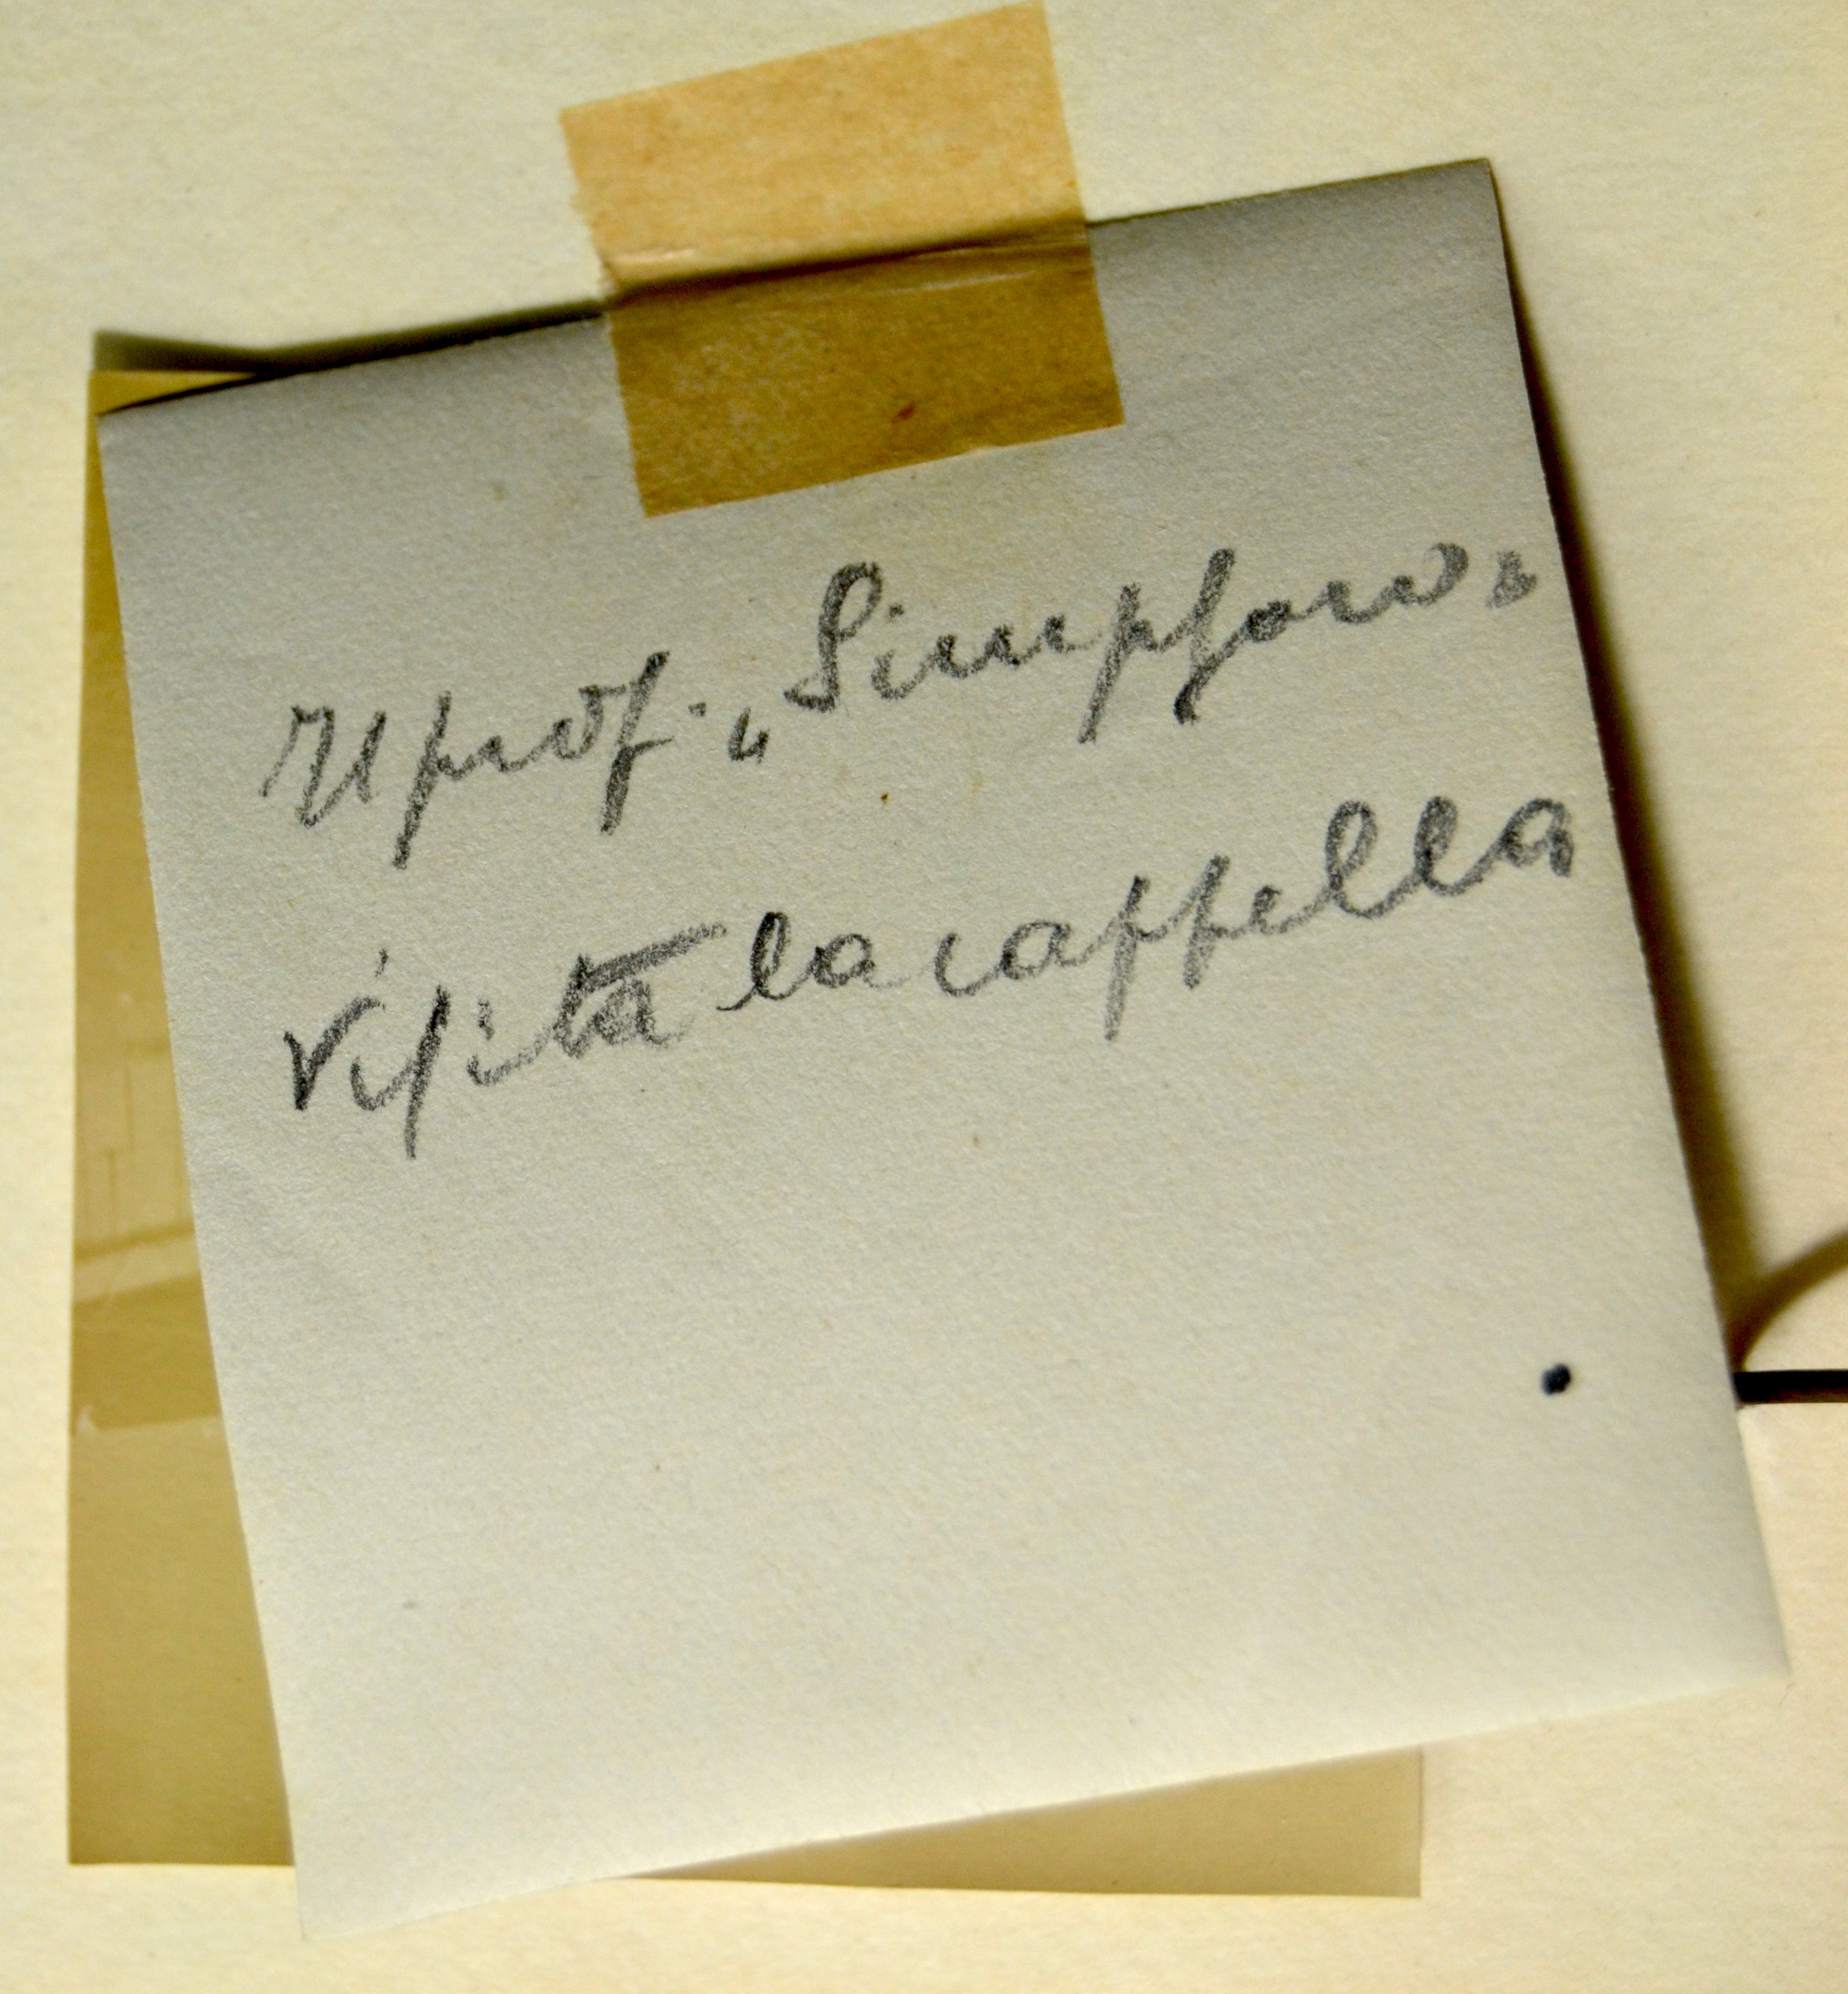 Il prof. „Simpson"
visita la cappella